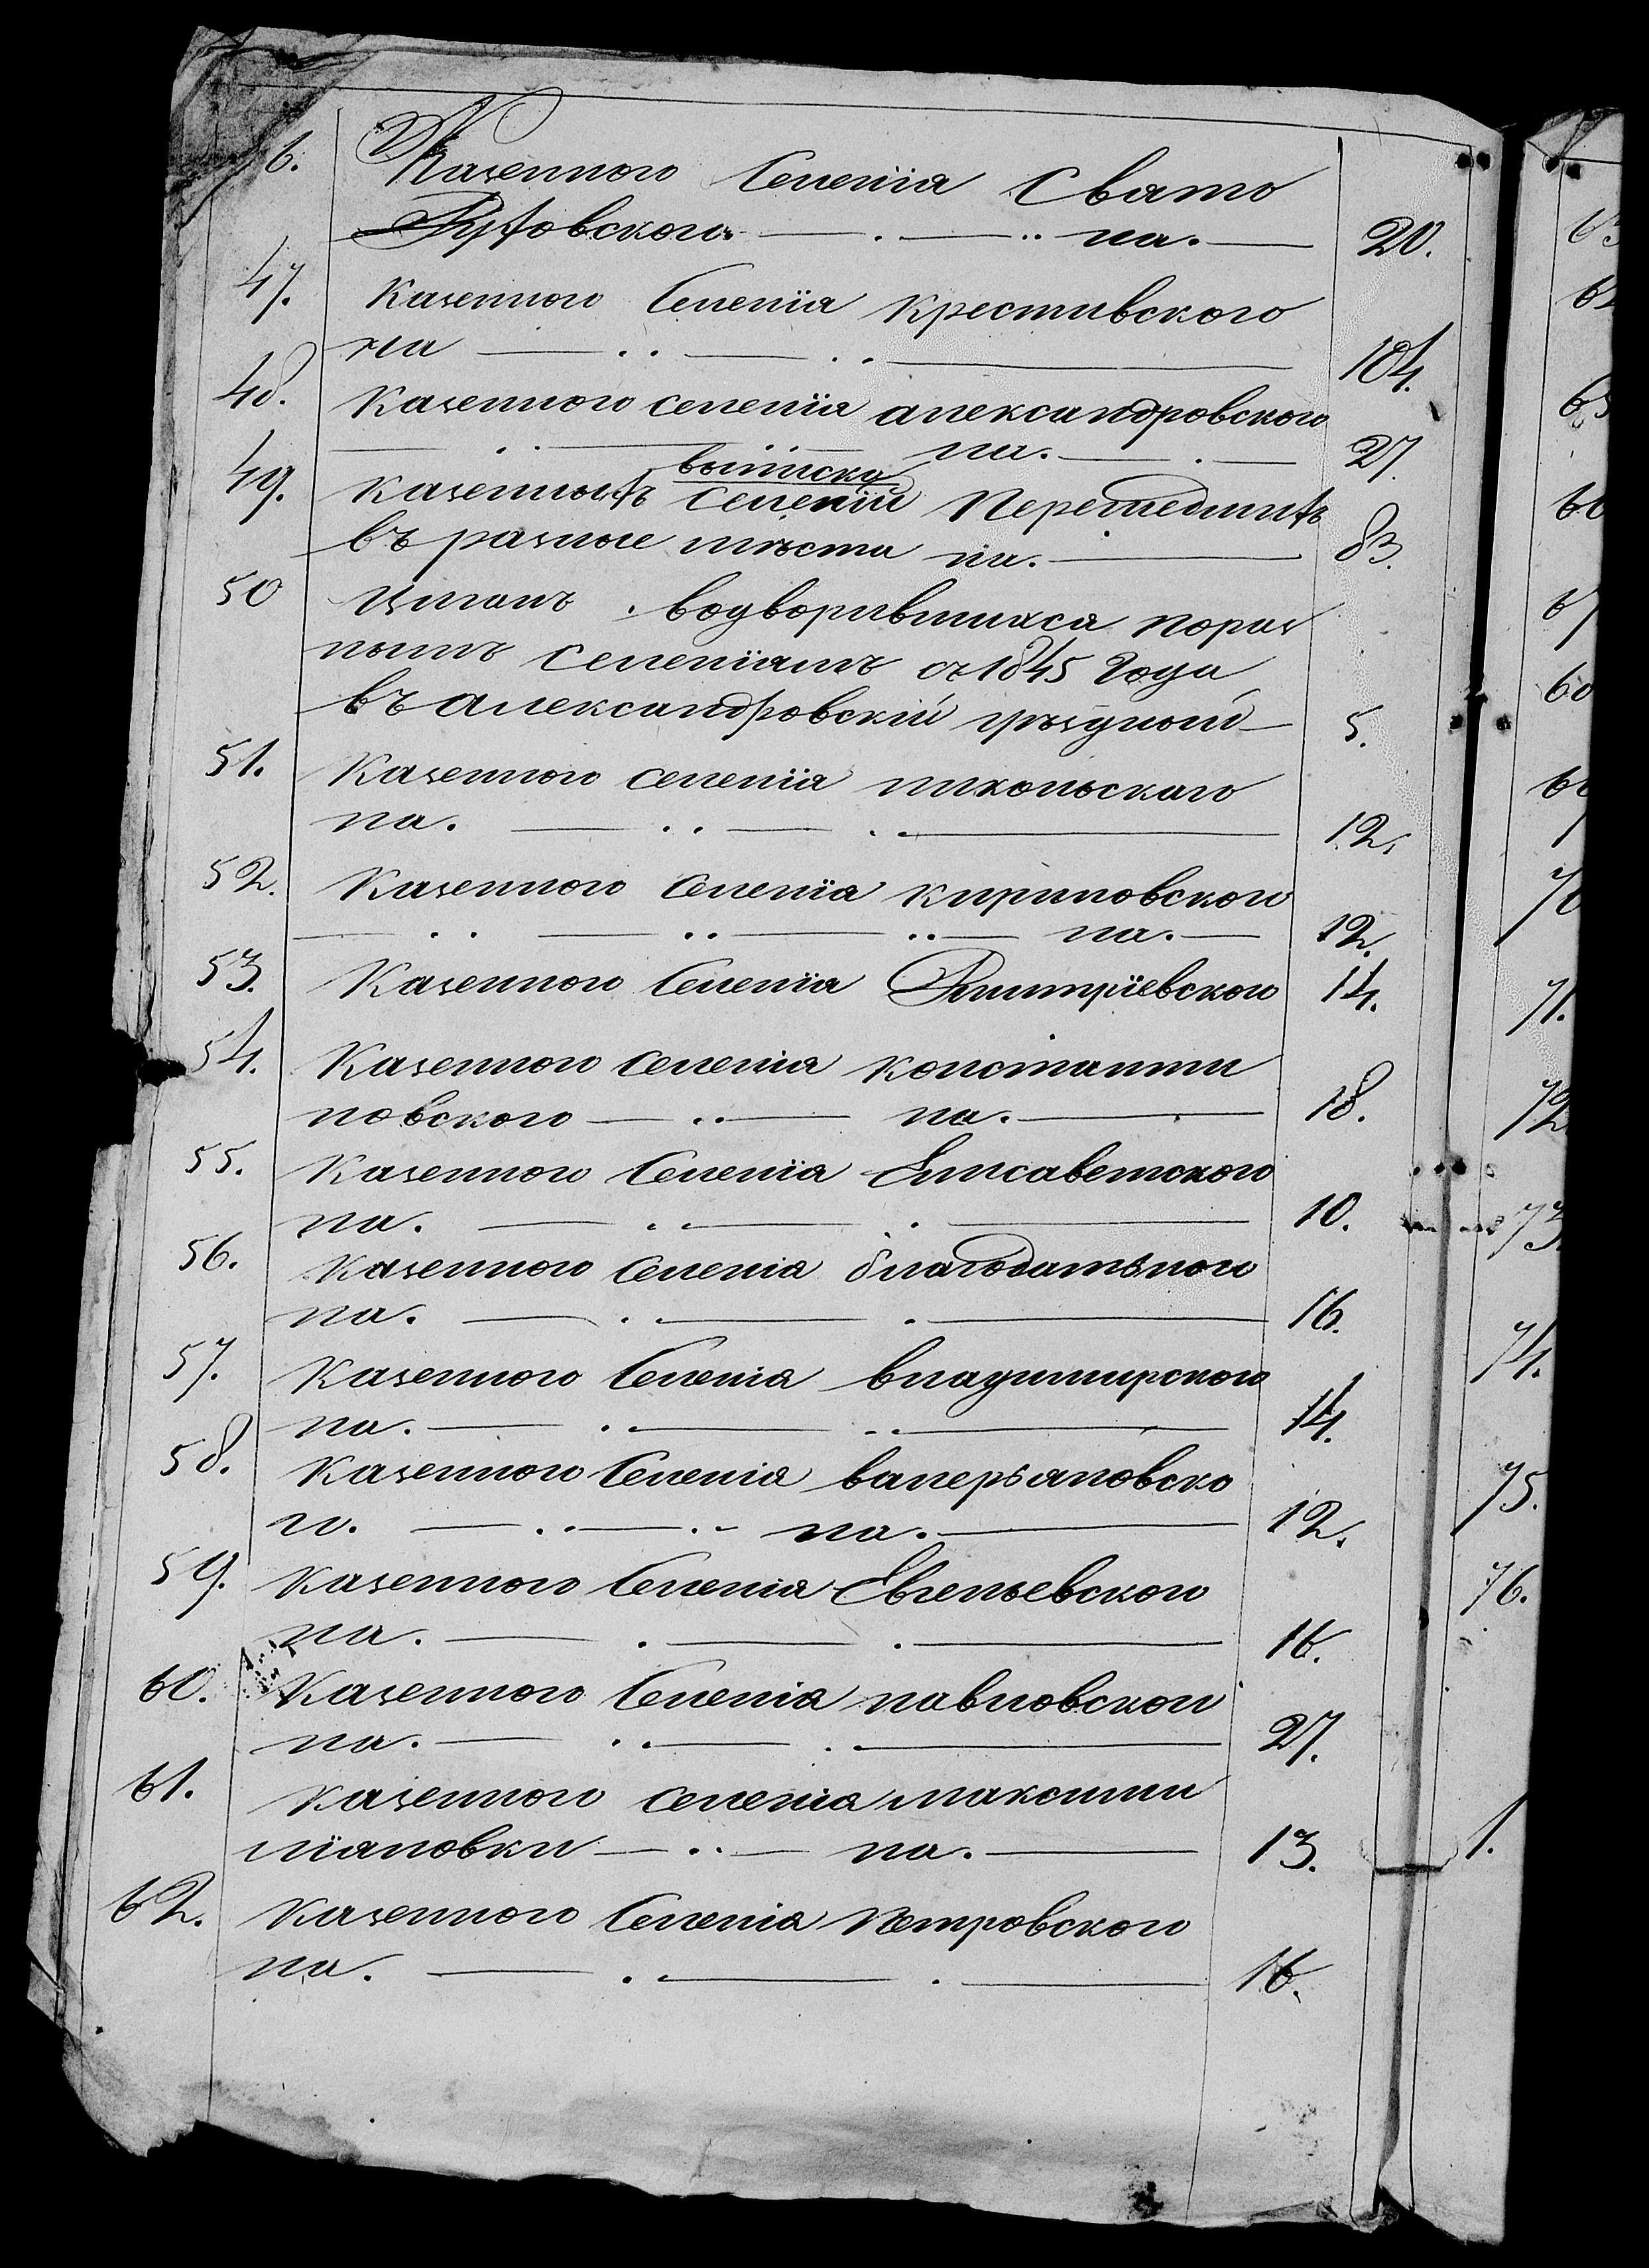 6. Казенного Селенія Свято
Духовского. на. 20.
47. Казенного Селенія Крестивского
на 104.
48. Казенного селенія александровского
на. 27.
выписка
49. Казенныхъ Селеній Перешедшихъ
въ разные мѣста на. 83.
50 Цыганъ водворившихся пораз
нымъ селеніямъ съ 1845 Года
въ Александровскій уѣздной 5.
51. Казенного селенія никольскаго
на. 12.
52. Казенного Селенія кириловского
на. 12.
53. Казенного Селенія Дмитріевского 14.
54. Казенного Селенія константи
новского на. 18.
55. Казенного Селенія Елисаветского
на. 10.
56. Казенного Селенія благодатьного
на. 16.
57. Казенного Селенія владимирского
на. 14.
58. Казенного Селенія валерьяновско
го. на. 12.
59. Казенного Селенія Евгеньевского
на. 16.
60. Казенного Селенія павловского
на. 27.
61. Казенного селенія максими
ліяновки на. 13.
62. Казенного Селенія Петровского
на. 16.
71.
72.
73.
74.
75.
76.
1.